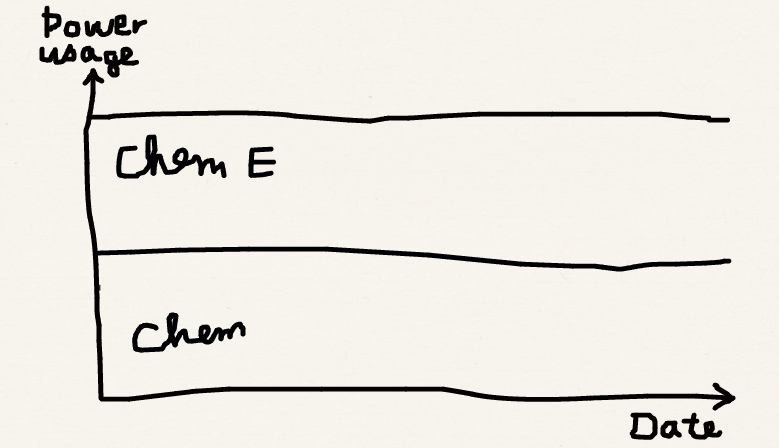 Power
usage
Chem E
Chem
Date